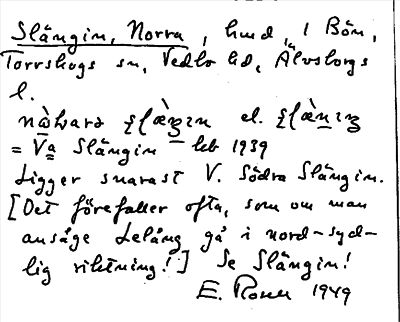 Slängin, Norra, hmd, i Bön,
Torrskogs sn, Vedbo hd, Älvsborgs
l.
el.
= Va Slängin leb 1939
Ligger snarast V. Södra Slängin.
[Det förefaller ofta, som om man
ansåge Lelång gå i nord-syd-
lig riktning!] Se Slängin!
E. Rosell 1949